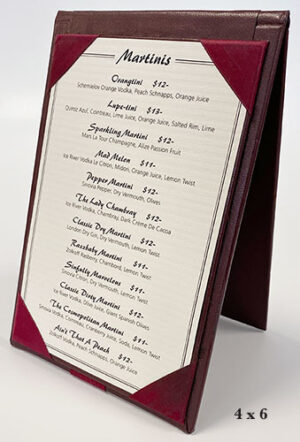 Martinis
Orangtini $12-
Orange Vodka, Peach Schnapps, Orange Juice
Lupe-tini $13-
Quiroz Azul, Cointreau, Lime Juice, Orange Juice, Salted Rim, Lime
Sparkling Martini $12-
Mars La Tour Champagne, Alize Passion Fruit
Mad Melon $11-
Ice River Vodka La Citron, Midori, Orange Juice, Lemon Twist
Pepper Martini $12-
Sinova Pepper, Dry Vermouth, Olives
The Lady Chambray $12-
Ice River Vodka, Chambray, Dark Crème De Cacao
Classic Dry Martini $12-
London Dry Gin, Dry Vermouth, Lemon Twist
Razzbaby Martini $11-
Zolkoff Rasberry, Chambord, Lemon Twist
Sinfully Marvelous $11-
Sinova Citron, Dry Vermouth, Lemon Twist
Classic Dirty Martini $12-
Ice River Vodka, Olive Juice, Giant Spanish Olives
The Cosmopolitan Martini $11-
Zolkoff Vodka, Cointreau, Cranberry Juice, Soda, Lemon Twist
Ain't That A Peach $12-
Zolkoff Vodka, Peach Schnapps, Orange Juice
4 x 6